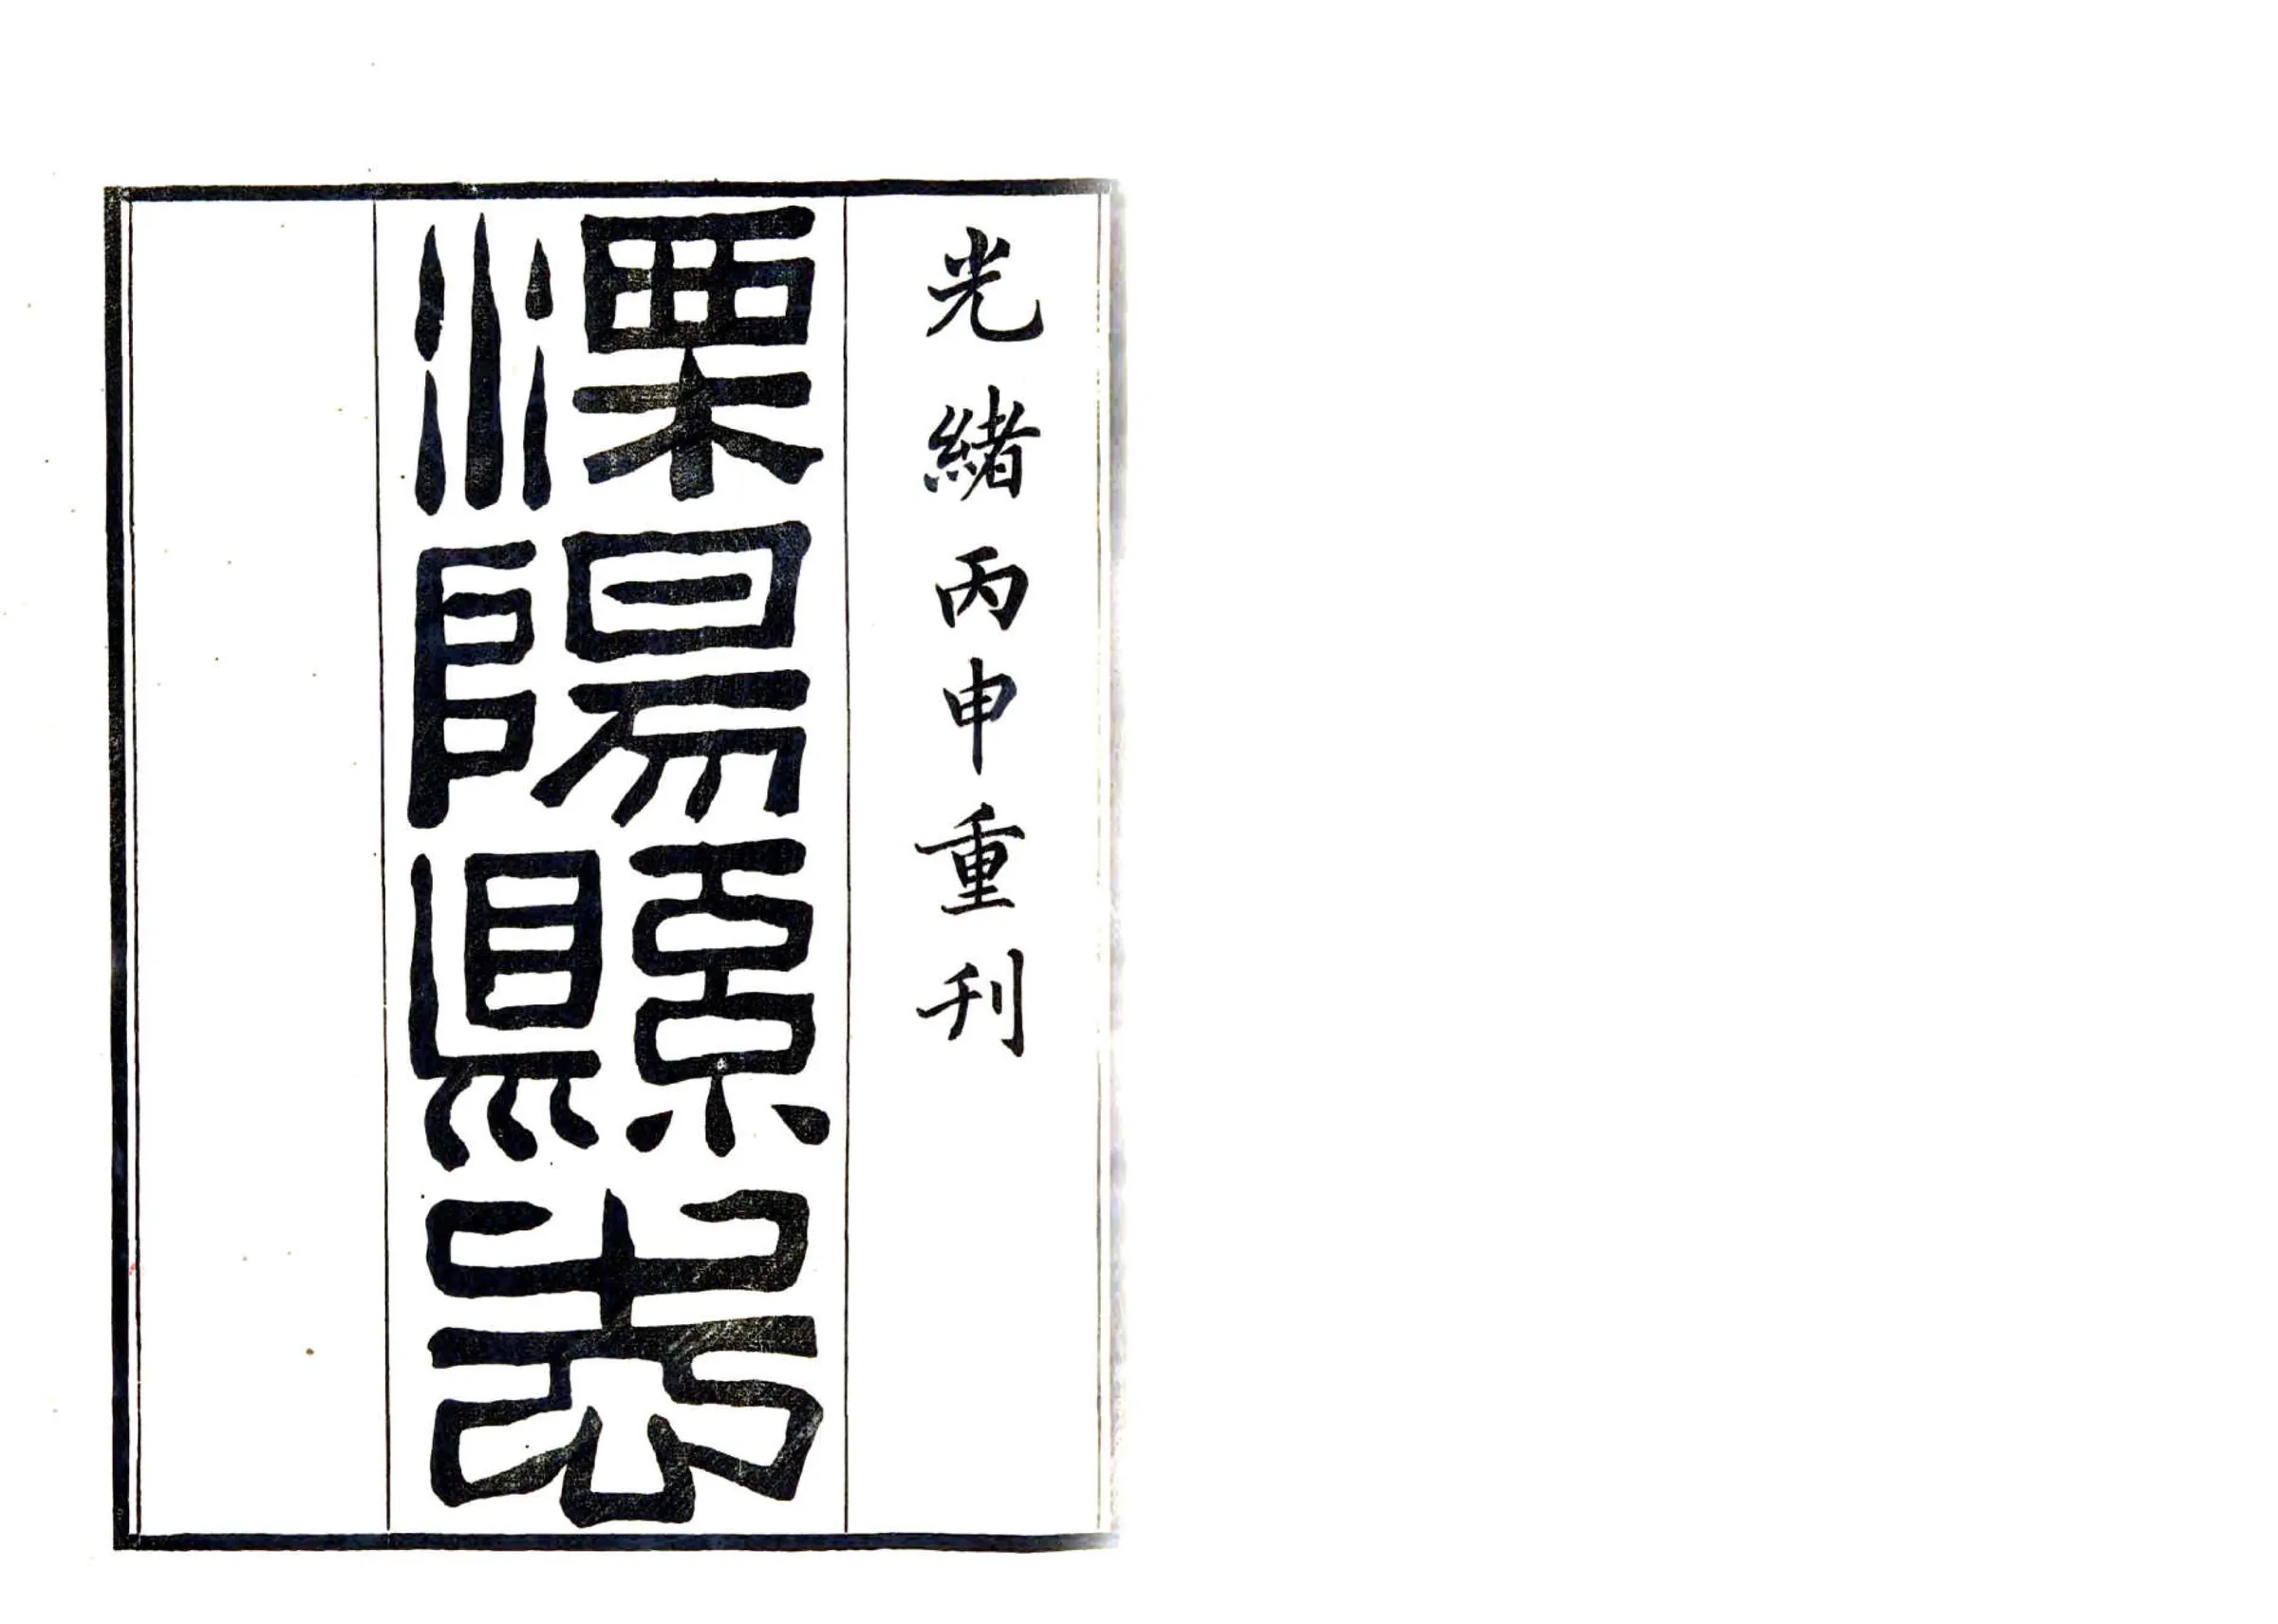 光緒丙申重刊
溧陽縣志